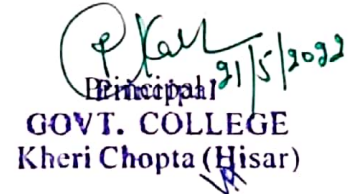 21/5/2022
Principal
GOVT. COLLEGE
Kheri Chopta (Hisar)